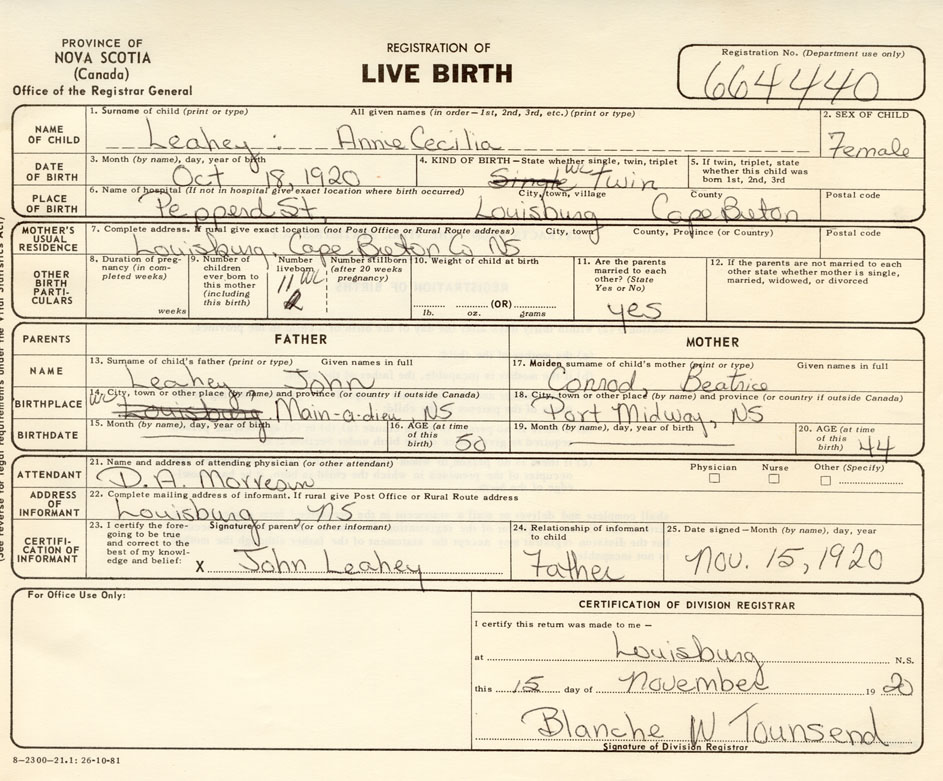 PROVINCE OF
NOVA SCOTIA
(Canada)
Office of the Registrar General
REGISTRATION OF
LIVE BIRTH
Registration No. (Department use only)
664440
NAME OF CHILD
1. Surname of child (print or type) All given names (in order—1st, 2nd, 3rd, etc.) (print or type)
Leahey : Annie Cecilia
2. SEX OF CHILD
Female
DATE OF BIRTH
3. Month (by name), day, year of birth
Oct 18, 1920
4. KIND OF BIRTH—State whether single, twin, triplet
Single WC Twin
5. If twin, triplet, state whether this child was born 1st, 2nd, 3rd
PLACE OF BIRTH
6. Name of hospital (If not in hospital give exact location where birth occurred) City, town, village County Postal code
Pepperd St, Louisburg Cape Breton
MOTHER'S USUAL RESIDENCE
7. Complete address. If rural give exact location (not Post Office or Rural Route address) City, town County, Province (or Country) Postal code
Louisburg, Cape Breton Co NS
OTHER BIRTH PARTI-CULARS
8. Duration of preg-nancy (in com-pleted weeks)
weeks
9. Number of children ever born to this mother (including this birth)
Number liveborn
11 WC
2
Number stillborn (after 20 weeks pregnancy)
10. Weight of child at birth
(OR)
lb. oz. grams
11. Are the parents married to each other? (State Yes or No)
yes
12. If the parents are not married to each other state whether mother is single, married, widowed, or divorced
PARENTS
FATHER
MOTHER
NAME
13. Surname of child's father (print or type) Given names in full
Leahey John
17. Maiden surname of child's mother (print or type) Given names in full
Conrod, Beatrice
BIRTHPLACE
14. City, town or other place (by name) and province (or country if outside Canada)
WC Louisburg, Main-a-dieu, NS
18. City, town or place (by name) and province (or country if outside Canada)
Port Midway, NS
BIRTHDATE
15. Month (by name), day, year of birth
16. AGE (at time of this birth)
50
19. Month (by name), day, year of birth
20. AGE (at time of this birth)
44
ATTENDANT
21. Name and address of attending physician (or other attendant)
D. A. Morrison
Physician Nurse Other (Specify)
ADDRESS OF INFORMANT
22. Complete mailing address of informant. If rural give Post Office or Rural Route address
Louisburg NS
CERTIFI-CATION OF INFORMANT
23. I certify the fore-going to be true and correct to the best of my knowl-edge and belief:
Signature of parent (or other informant)
X John Leahey
24. Relationship of informant to child
Father
25. Date signed—Month (by name), day, year
Nov. 15, 1920
For Office Use Only:
CERTIFICATION OF DIVISION REGISTRAR
I certify this return was made to me —
at Louisburg N.S.
this 15 day of November 19 20
Blanche W Townsend
Signature of Division Registrar
8-2300-21.1: 26-10-81